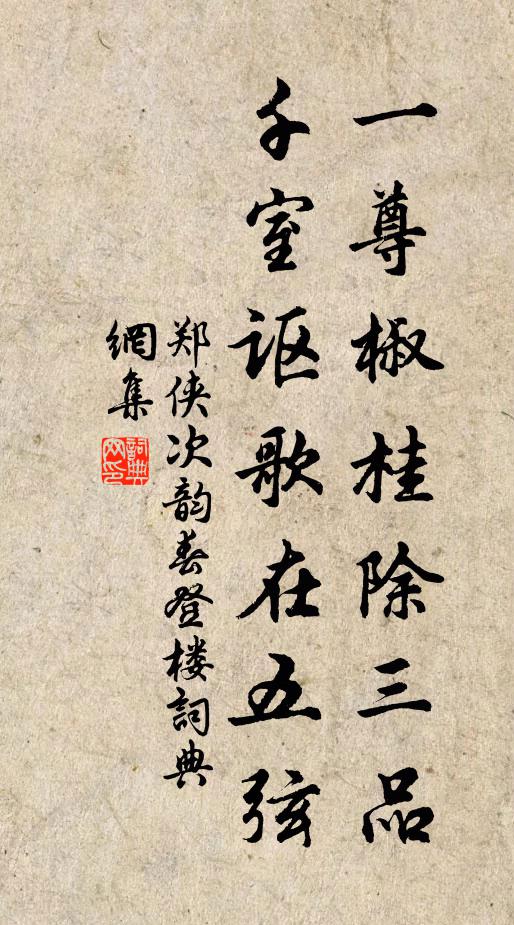 一尊椒桂除三品
千室讴歌在五弦
郑侠次韵春登楼詞典
網集
詞典网印